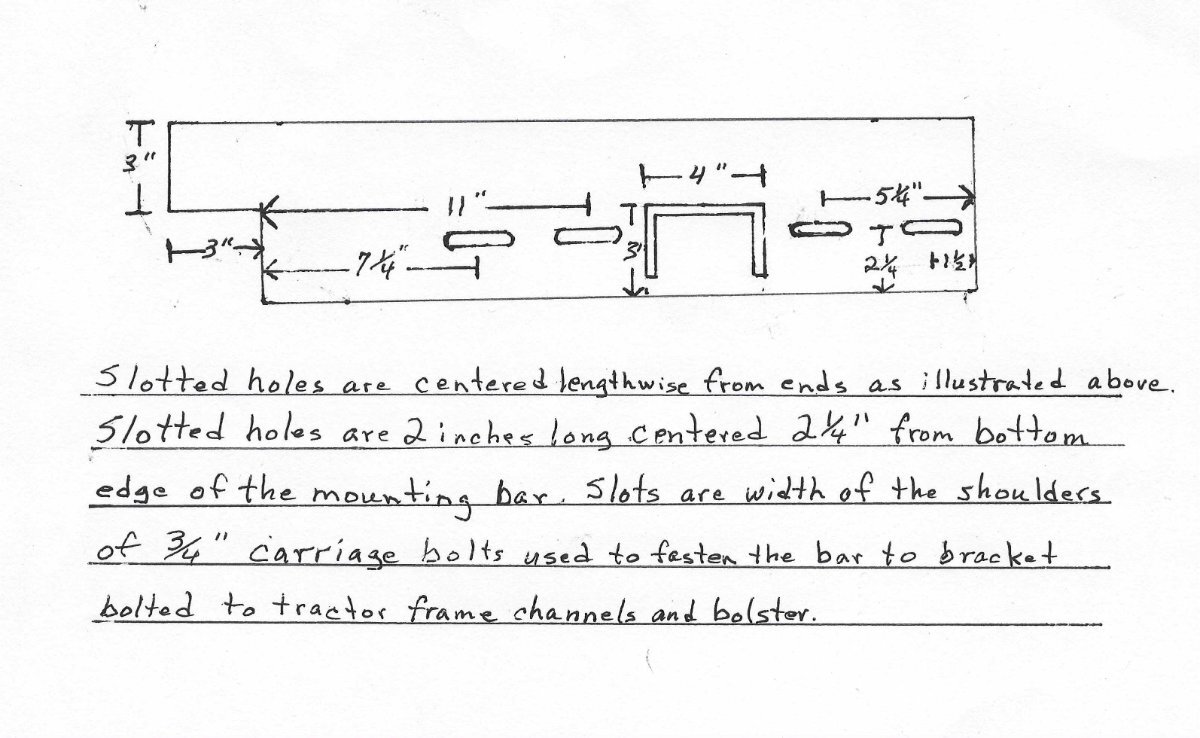 3"
4"
11"
5¼"
3"
3"
7¼"
2¼
1½
Slotted holes are centered lengthwise from ends as illustrated above.
Slotted holes are 2 inches long centered 2¼" from bottom
edge of the mounting bar. Slots are width of the shoulders
of ¾" carriage bolts used to fasten the bar to bracket
bolted to tractor frame channels and bolster.